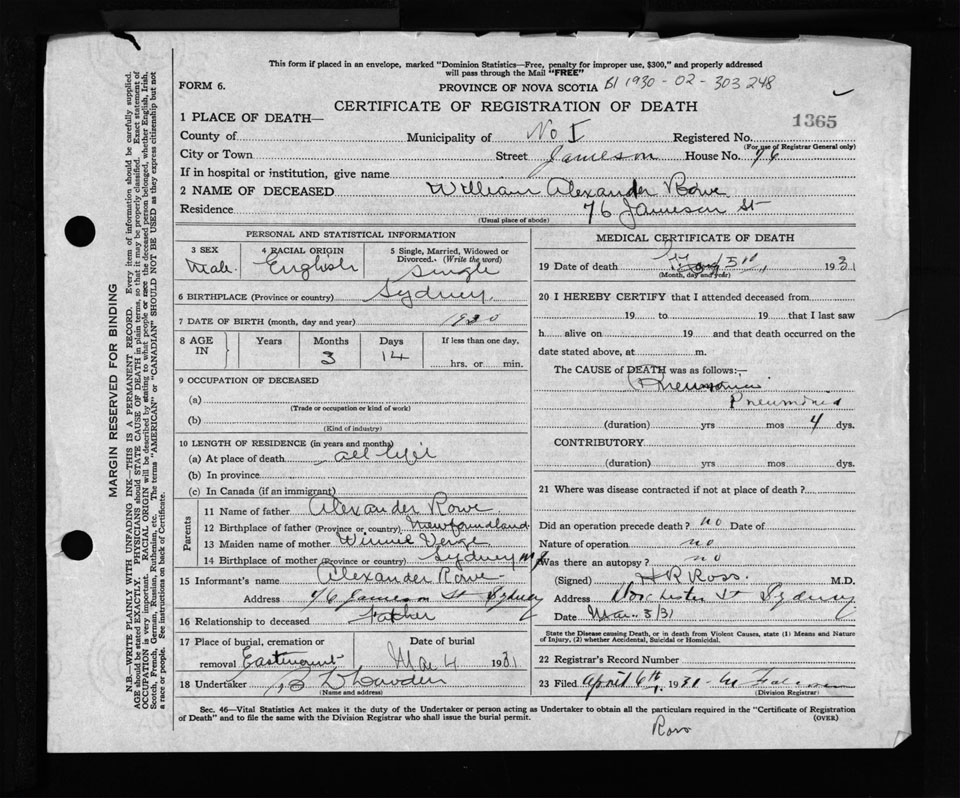 This form if placed in an envelope, marked "Dominion Statistics—Free, penalty for improper use, $300," and properly addressed
will pass through the Mail "FREE"
FORM 6.
PROVINCE OF NOVA SCOTIA B1 1930 - 02 - 303248
CERTIFICATE OF REGISTRATION OF DEATH
1365
1 PLACE OF DEATH—
County of Municipality of No I Registered No.
(For use of Registrar General only)
City or Town Street Jameson House No. 76
If in hospital or institution, give name
2 NAME OF DECEASED William Alexander Rowe
Residence 76 Jameson St
(Usual place of abode)
PERSONAL AND STATISTICAL INFORMATION
3 SEX 4 RACIAL ORIGIN 5 Single, Married, Widowed or Divorced. (Write the word)
Male English Single
6 BIRTHPLACE (Province or country) Sydney
7 DATE OF BIRTH (month, day and year) 1930
8 AGE IN Years Months Days If less than one day,
3 14 hrs. or min.
9 OCCUPATION OF DECEASED
(a)
(Trade or occupation or kind of work)
(b)
(Kind of industry)
10 LENGTH OF RESIDENCE (in years and months)
(a) At place of death all life
(b) In province
(c) In Canada (if an immigrant)
Parents
11 Name of father Alexander Rowe
12 Birthplace of father (Province or country) Newfoundland
13 Maiden name of mother Winnie Verge
14 Birthplace of mother (Province or country) Sydney
15 Informant's name Alexander Rowe
Address 76 Jameson St Sydney
16 Relationship to deceased Father
17 Place of burial, cremation or Date of burial
removal Eastmount Mar 4 1931
18 Undertaker
(Name and address)
MEDICAL CERTIFICATE OF DEATH
19 Date of death 3rd 1931
(Month, day and year)
20 I HEREBY CERTIFY that I attended deceased from
19 to 19 that I last saw
h alive on 19 and that death occurred on the
date stated above, at m.
The CAUSE of DEATH was as follows:—
Pneumonia
Pneumonia
(duration) yrs mos 4 dys.
CONTRIBUTORY
(duration) yrs mos dys.
21 Where was disease contracted if not at place of death?
Did an operation precede death? no Date of
Nature of operation no
Was there an autopsy? no
(Signed) H R Ross. M.D.
Address Dorchester St Sydney
Date Mar 3/31
State the Disease causing Death, or in death from Violent Causes, state (1) Means and Nature
of Injury, (2) whether Accidental, Suicidal or Homicidal.
22 Registrar's Record Number
23 Filed April 6th 1931
(Division Registrar)
Sec. 46—Vital Statistics Act makes it the duty of the Undertaker or person acting as Undertaker to obtain all the particulars required in the "Certificate of Registration
of Death" and to file the same with the Division Registrar who shall issue the burial permit. (OVER)
MARGIN RESERVED FOR BINDING
N.B.—WRITE PLAINLY WITH UNFADING INK—THIS IS A PERMANENT RECORD. Every item of information should be carefully supplied.
AGE should be stated EXACTLY. PHYSICIANS should STATE CAUSE OF DEATH in plain terms, so that it may be properly classified. Exact statement of
OCCUPATION is very important. RACIAL ORIGIN will be described by stating to what people or race the deceased person belonged, whether English, Irish,
Scotch, French, German, Russian, Ruthenian, etc. The terms "AMERICAN" or "CANADIAN" SHOULD NOT BE USED as they express citizenship but not
a race or people. See instructions on back of Certificate.